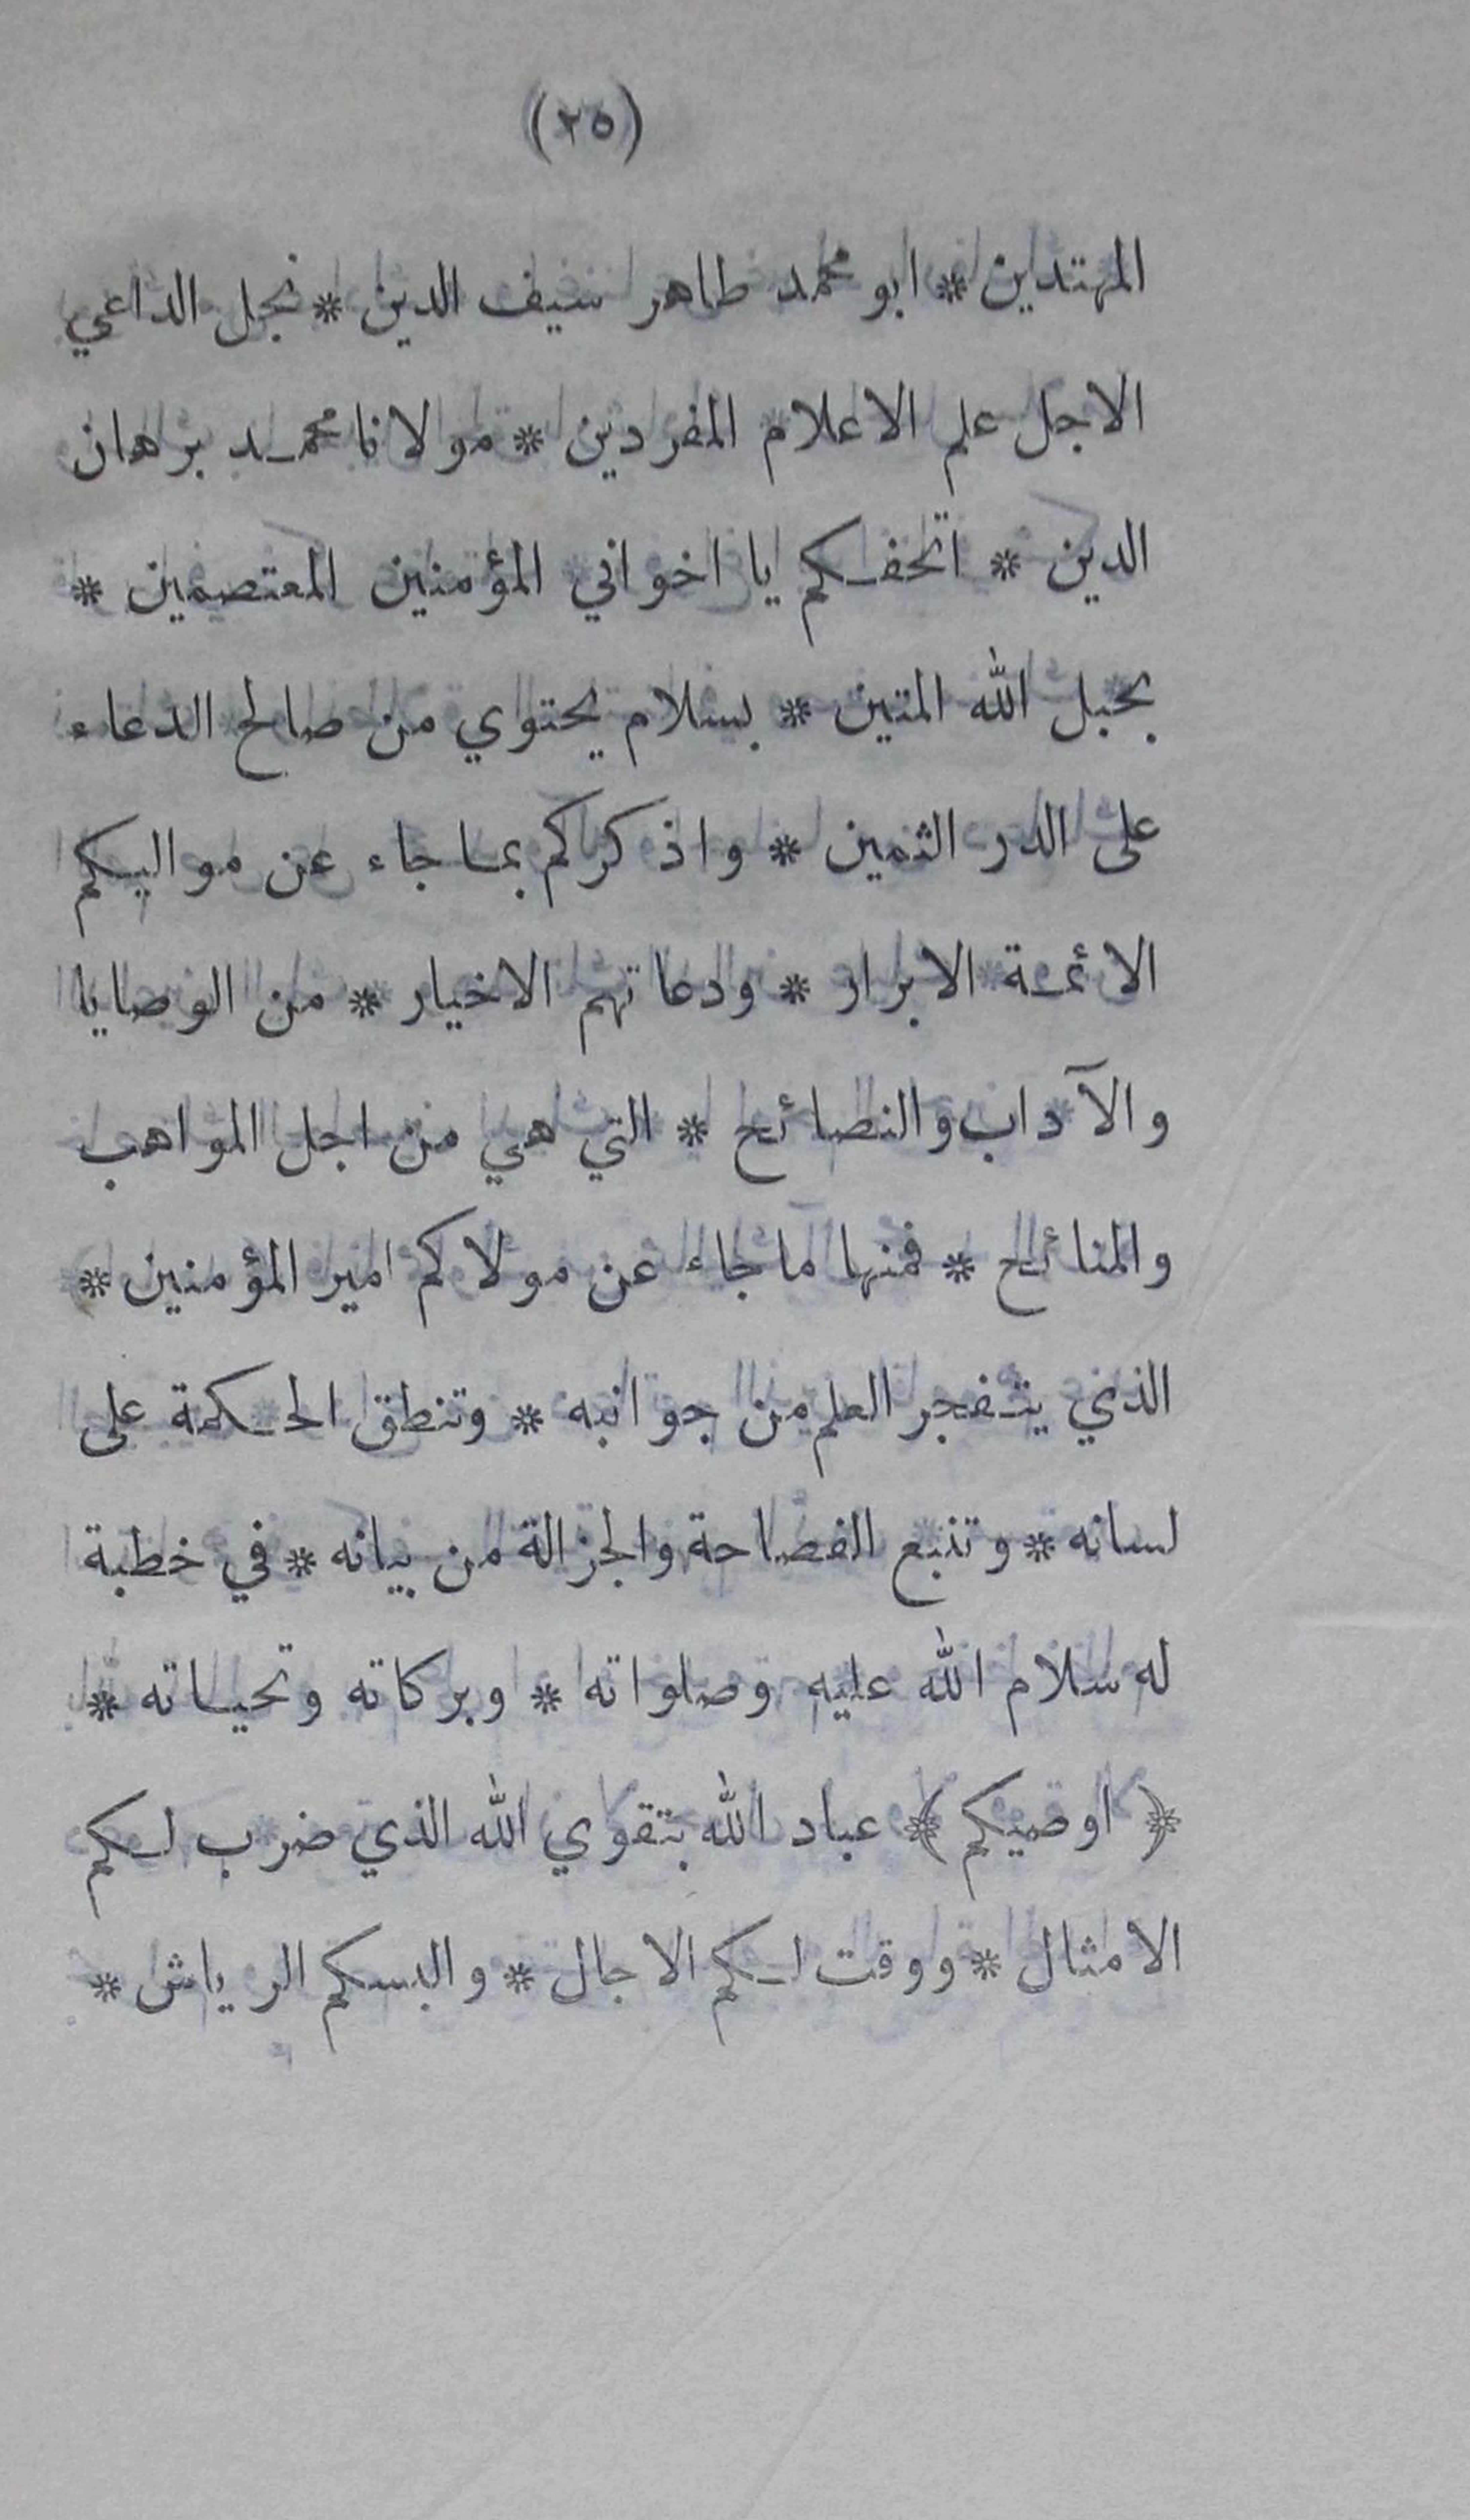 (٢٥)
المهتدين * ابو محمد طاهر سيف الدين * نجل الداعي
الاجل علم الاعلام المفردين * مولانا محمد برهان
الدين * اتحفكم يا اخواني المؤمنين المعتصمين *
بحبل الله المتين * بسلام يحتوي من صالح الدعاء
على الدر الثمين * واذكركم بما جاء عن مواليكم
الائمة الابرار * ودعاتهم الاخيار * من الوصايا
والآداب والنصائح * التي هي من اجل المواهب
والمنائح * فمنها ما جاء عن مولاكم امير المؤمنين *
الذي يتفجر العلم من جوانبه * وتنطق الحكمة على
لسانه * وتنبع الفصاحة والجزالة من بيانه * في خطبة
له سلام الله عليه وصلواته * وبركاته وتحياته *
﴿ اوصيكم ﴾ عباد الله بتقوي الله الذي ضرب لكم
الامثال * ووقت لكم الاجال * والبسكم الرياش *